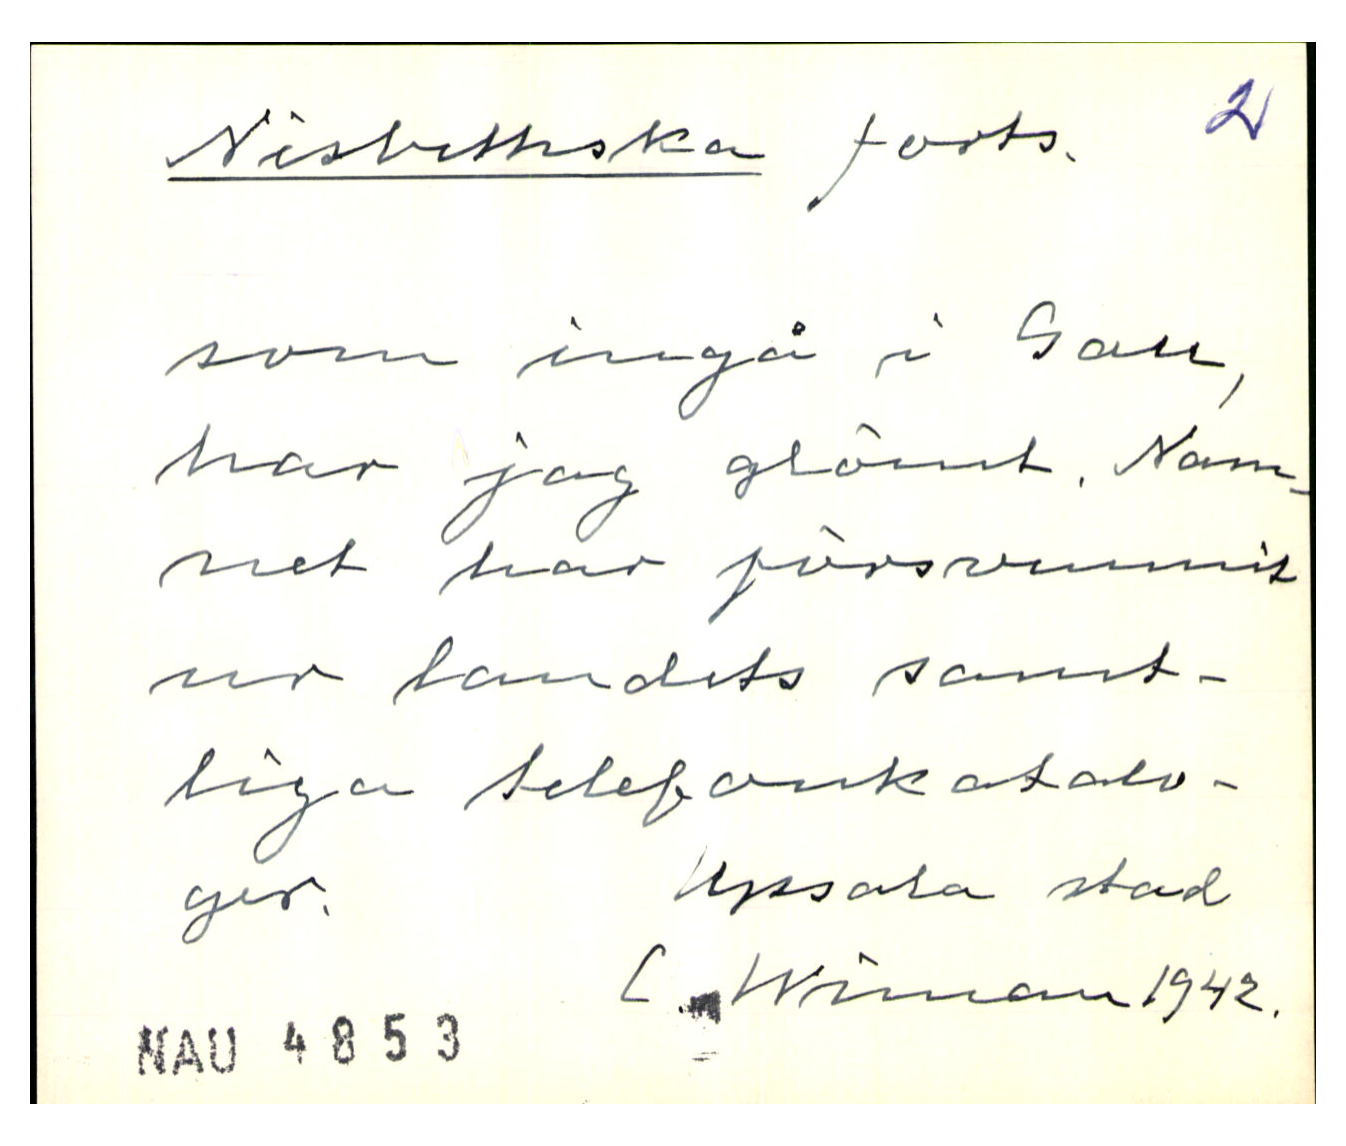 Nisbethska forts. 2
som ingå i Gau,
har jag glömt. Nam-
net har försvunnit
ur landets samt-
liga telefonkatalo-
ger. Upsala stad
C Wiman 1942.
NAU 4853